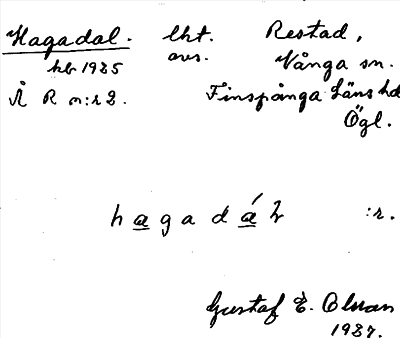 Hagadal. lht. Restad,
hb 1925 avs. Vånga sn.
Å R n:r 2. Finspånga läns hd
Ögl.
hagadáł :r.
Gustaf E. Olson
1927.